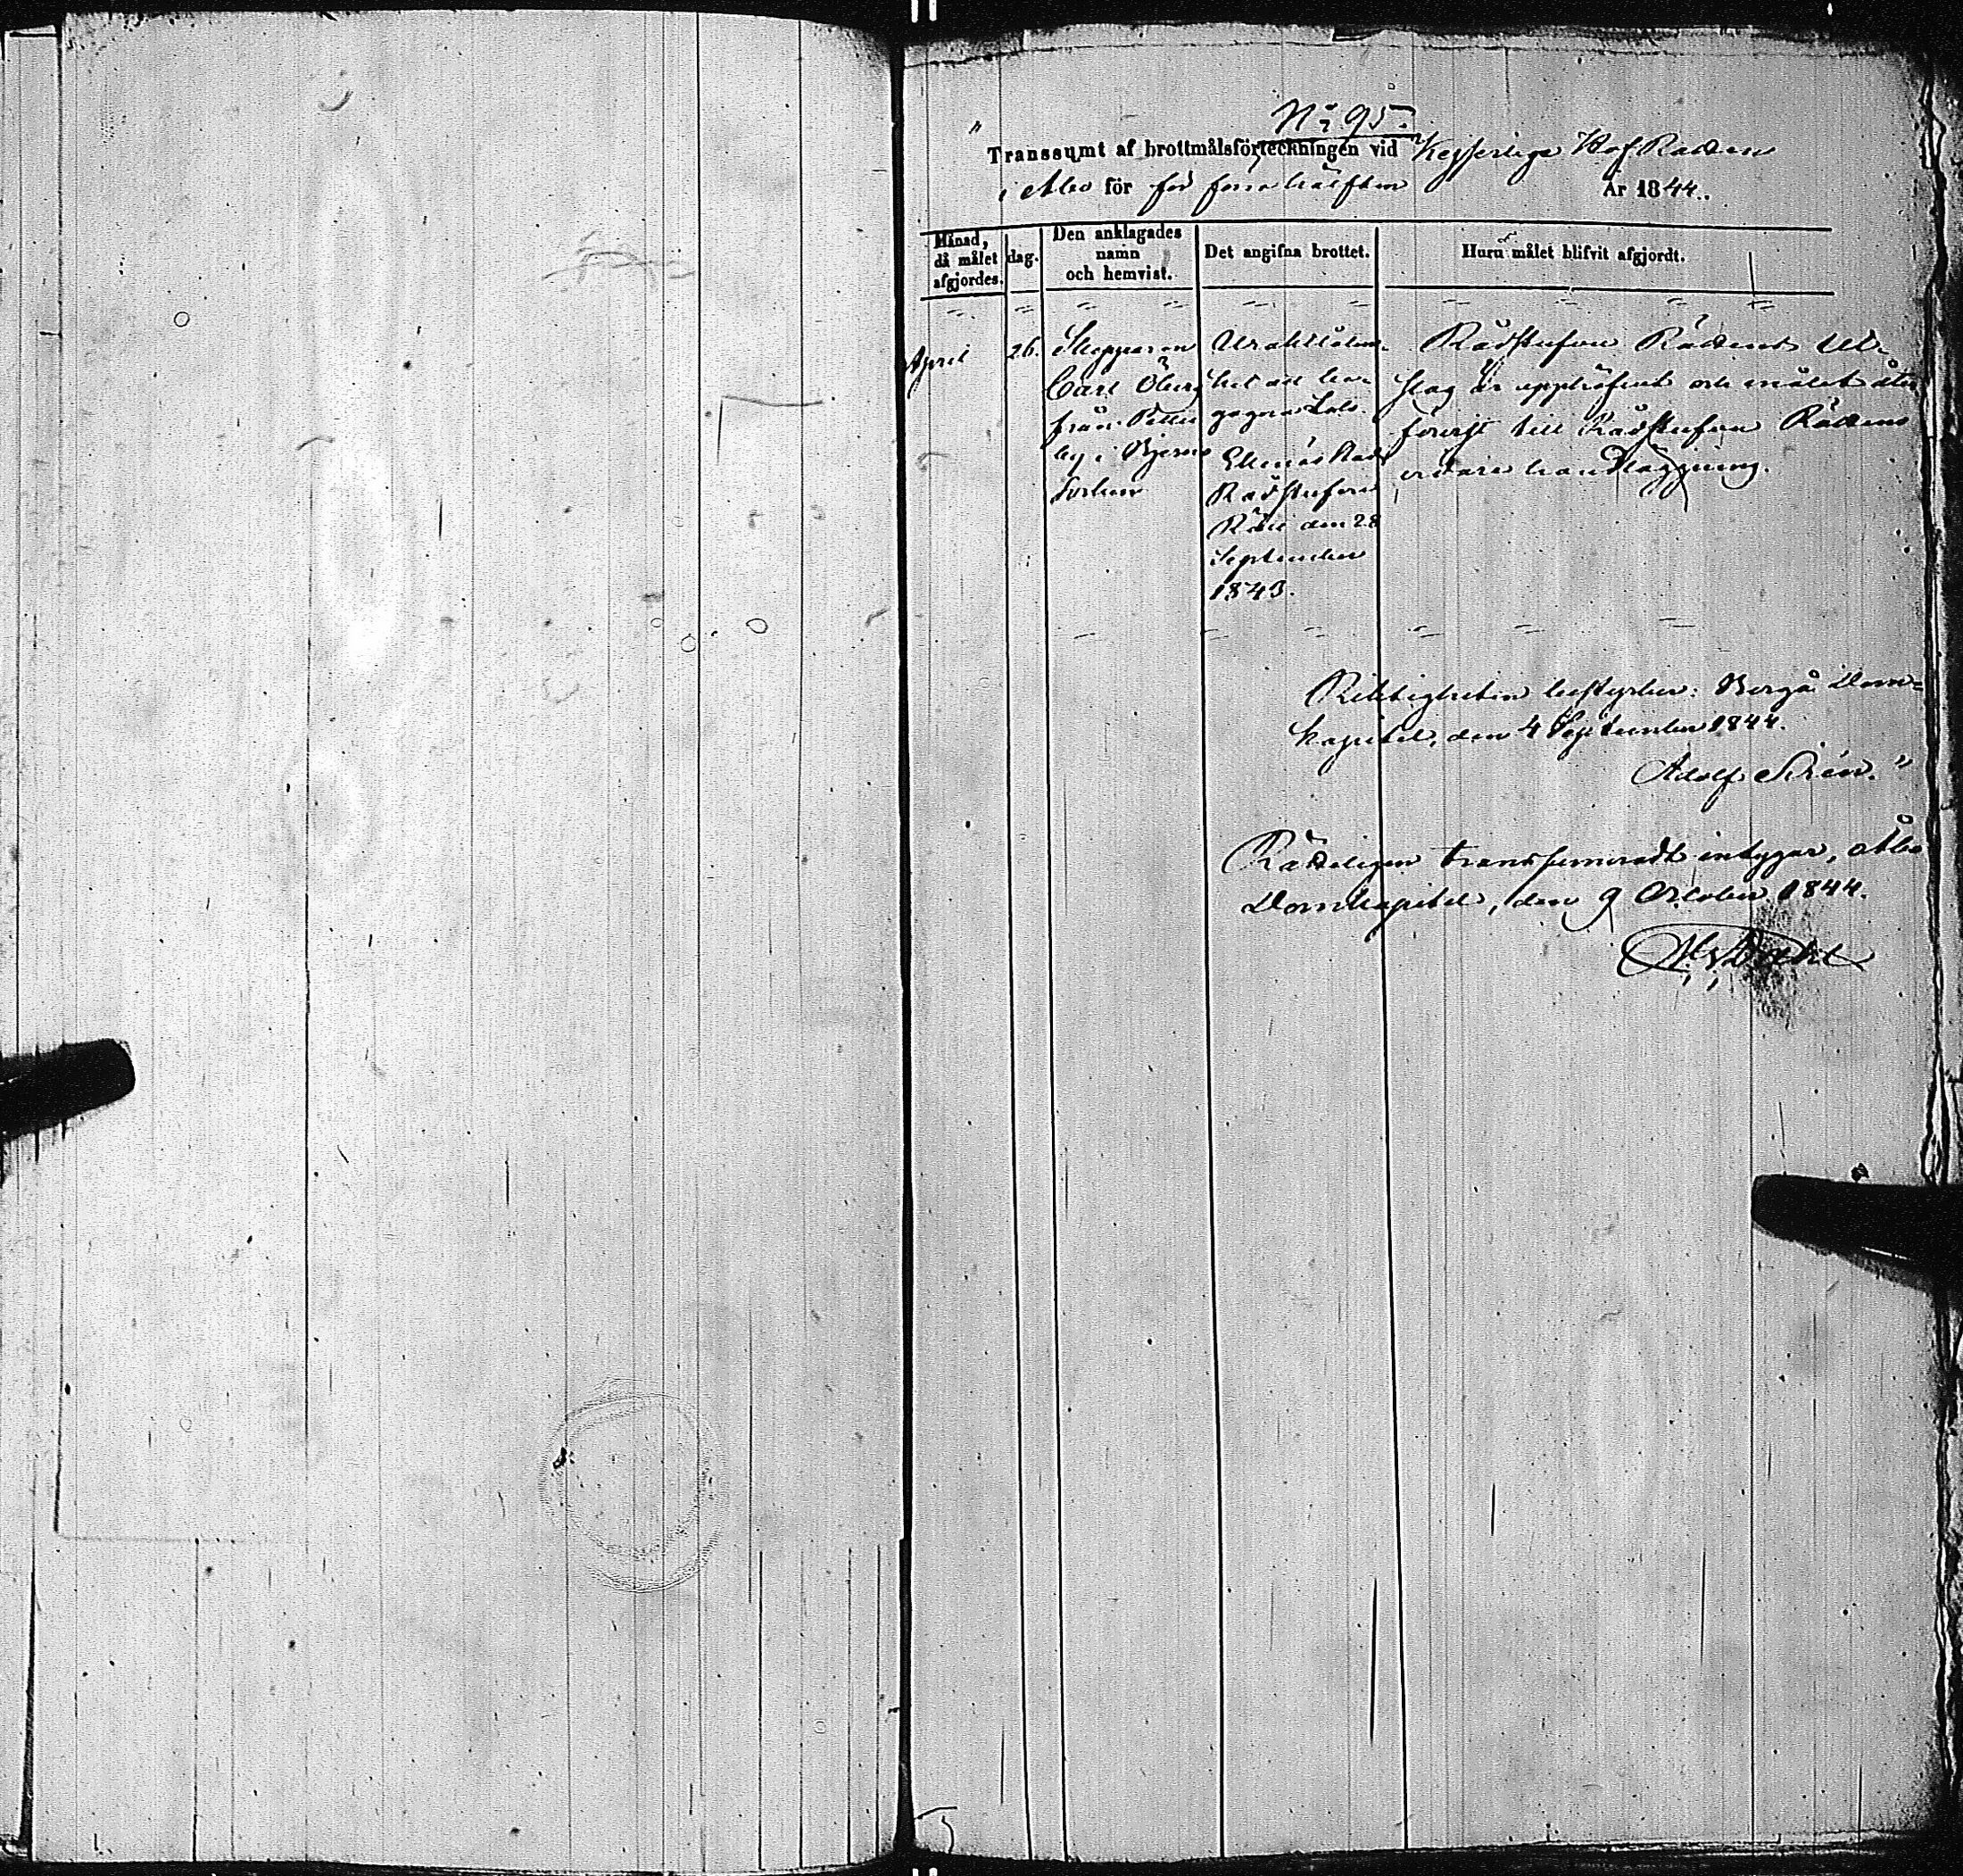 No 95.
"Transsumt af brottmålsförteckningen vid Kejserliga HofRätten
i Åbo för för förra hälften År 1844.
Månad, då målet afgjordes.
dag.
Den anklagades namn och hemvist.
Det angifna brottet.
Huru målet blifvit afgjordt.
April
26.
Skepparen
Carl Öberg
från Petters
by i Bjerno
Socken
Uraktlåten-
het att be-
gagna Lots.
Ekenäs Stads
Rådstufvu
Rätt den 28
September
1843.
Rådstufvu Rättens Ut-
slag är upphäfvet och målet åter
förvist till Rådstufvu Rättens
vidare handläggning.
Riktigheten bestyrker: Borgå Dom-
kapitel, den 4 September 1844.
Adolf Sirén."
Rätteligen transsumeradt intygar, Åbo
Domkapitel, den 9 October 1844.